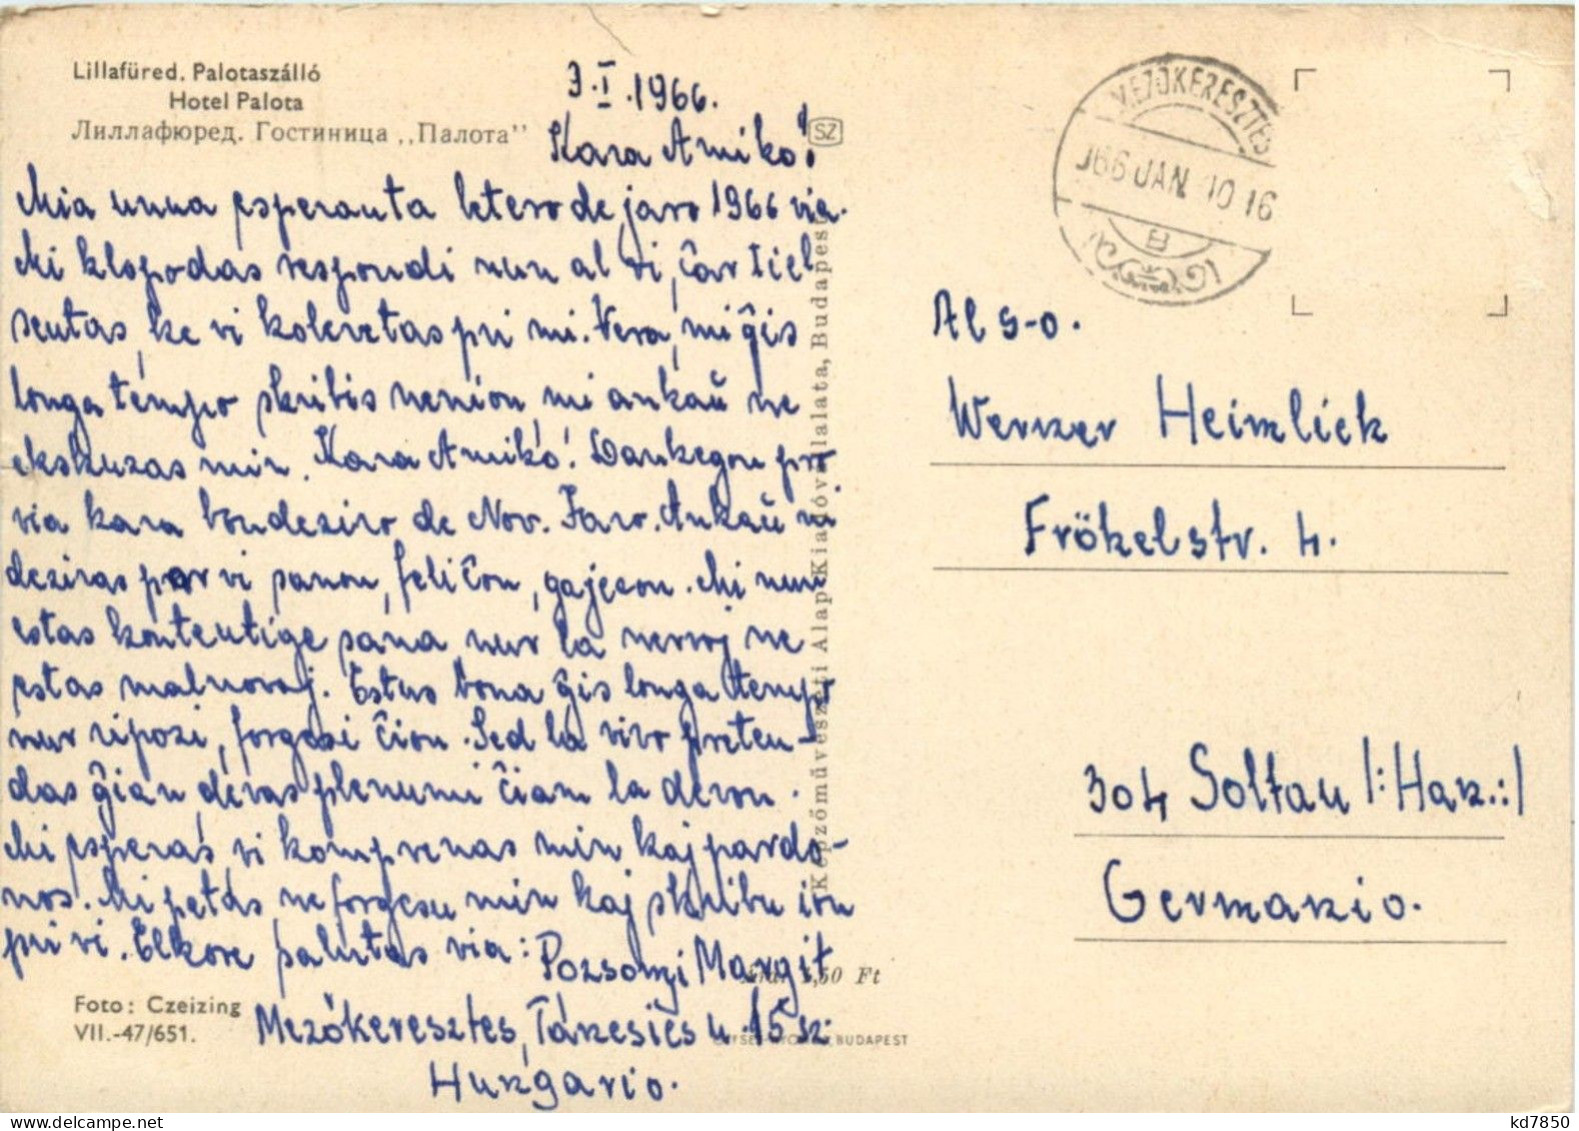 Lillafüred. Palotaszálló
Hotel Palota
Лиллафюред. Гостиница „Палота”
3.I.1966.
Kara Amiko!
SZ
Mia unua esperanta letero de jaro 1966 via.
Mi klopodas respondi nun al vi, ĉar tiel
sentas, ke vi koleretas pri mi. Vera, mi ĝis
longa tempo skribis nenion, mi ankaŭ ne
ekskuzas min. Kara Amiko! Dankegon pro
via kara bondeziro de Nov. Jaro. Ankaŭ mi
deziras por vi sanon, feliĉon, gajecon. Mi nun
estas kontentige sana, nur la nervoj ne
estas malnovaj. Estus bona ĝis longa tempo
nur ripozi, forgesi ĉion. Sed la vivo preten-
das ĝian, devas plenumi ĉiam la devon.
Mi esperas, vi komprenas min kaj pardo-
nos. Mi petas, ne forgesu min kaj skribu ion
pri vi. Elkore salutas via: Pozsonyi Margit
Mezőkeresztes, u. 15 sz.
Hungario.
Foto: Czeizing
VII.-47/651.
Képzőművészeti Alap Kiadóvállalata, Budapest
,50 Ft
BUDAPEST
MEZŐKERESZTES
966 JAN. 10 16
B
Al s-o.
Werner Heimlich
Frökelstr. 4.
304 Soltau /:Han.:/
Germanio.
kd7850